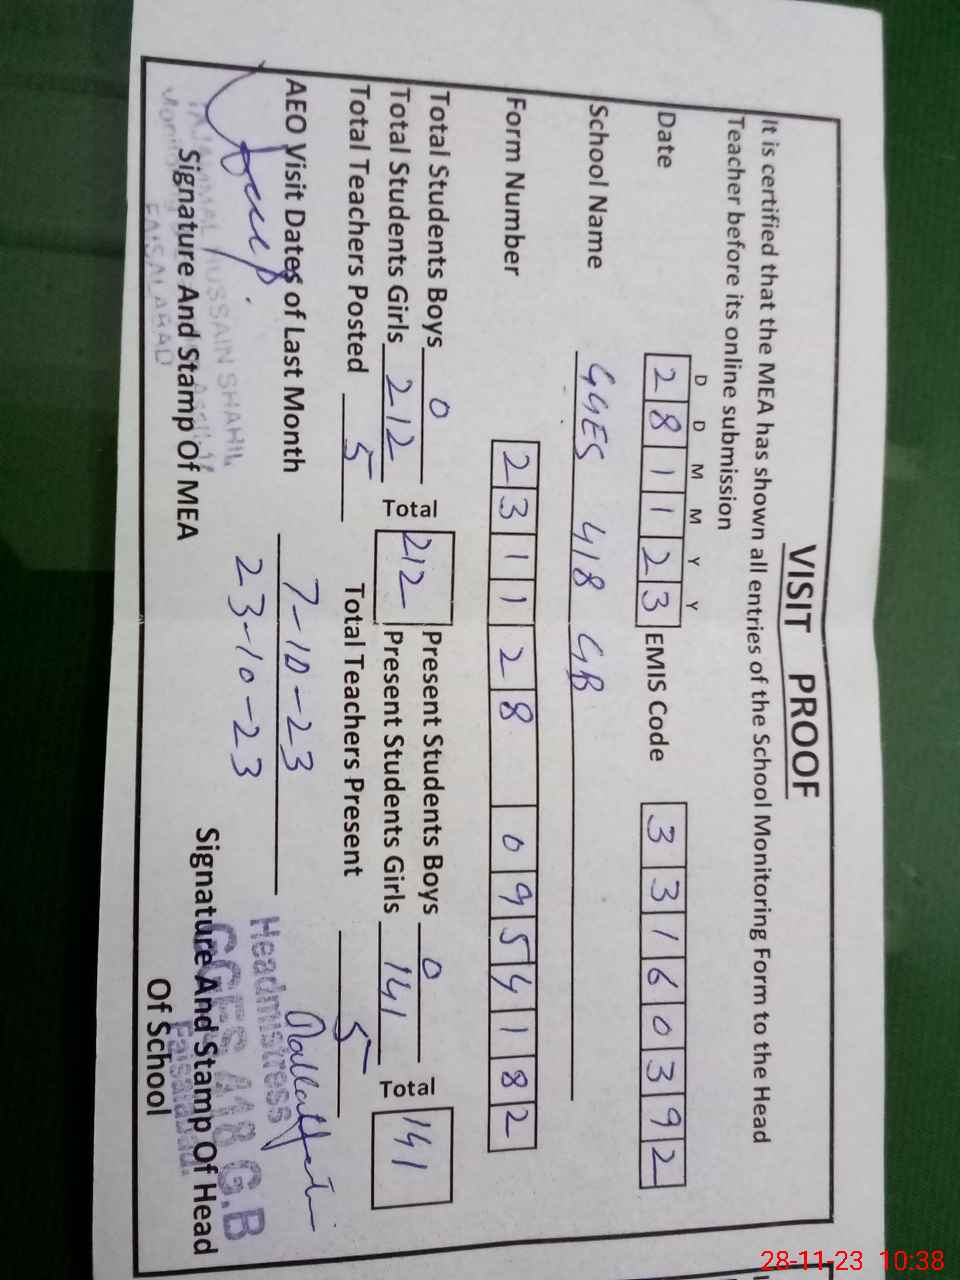 VISIT PROOF
It is certified that the MEA has shown all entries of the School Monitoring Form to the Head
Teacher before its online submission
D D M M Y Y
Date 2 8 1 1 2 3 EMIS Code 3 3 1 6 0 3 9 2
School Name GGES 418 GB
Form Number 2 3 1 1 2 8 0 9 5 4 1 8 2
Total Students Boys 0 Present Students Boys 0
Total Students Girls 212 Total 212 Present Students Girls 141 Total 141
Total Teachers Posted 5 Total Teachers Present 5
AEO Visit Dates of Last Month 7-10-23
23-10-23
TAJAMMAL HUSSAIN SHAHIL
FAISALABAD
Signature And Stamp Of MEA
Headmistress
GGES 418 G.B
Faisalabad.
Signature And Stamp Of Head
Of School
28-11-23 10:38